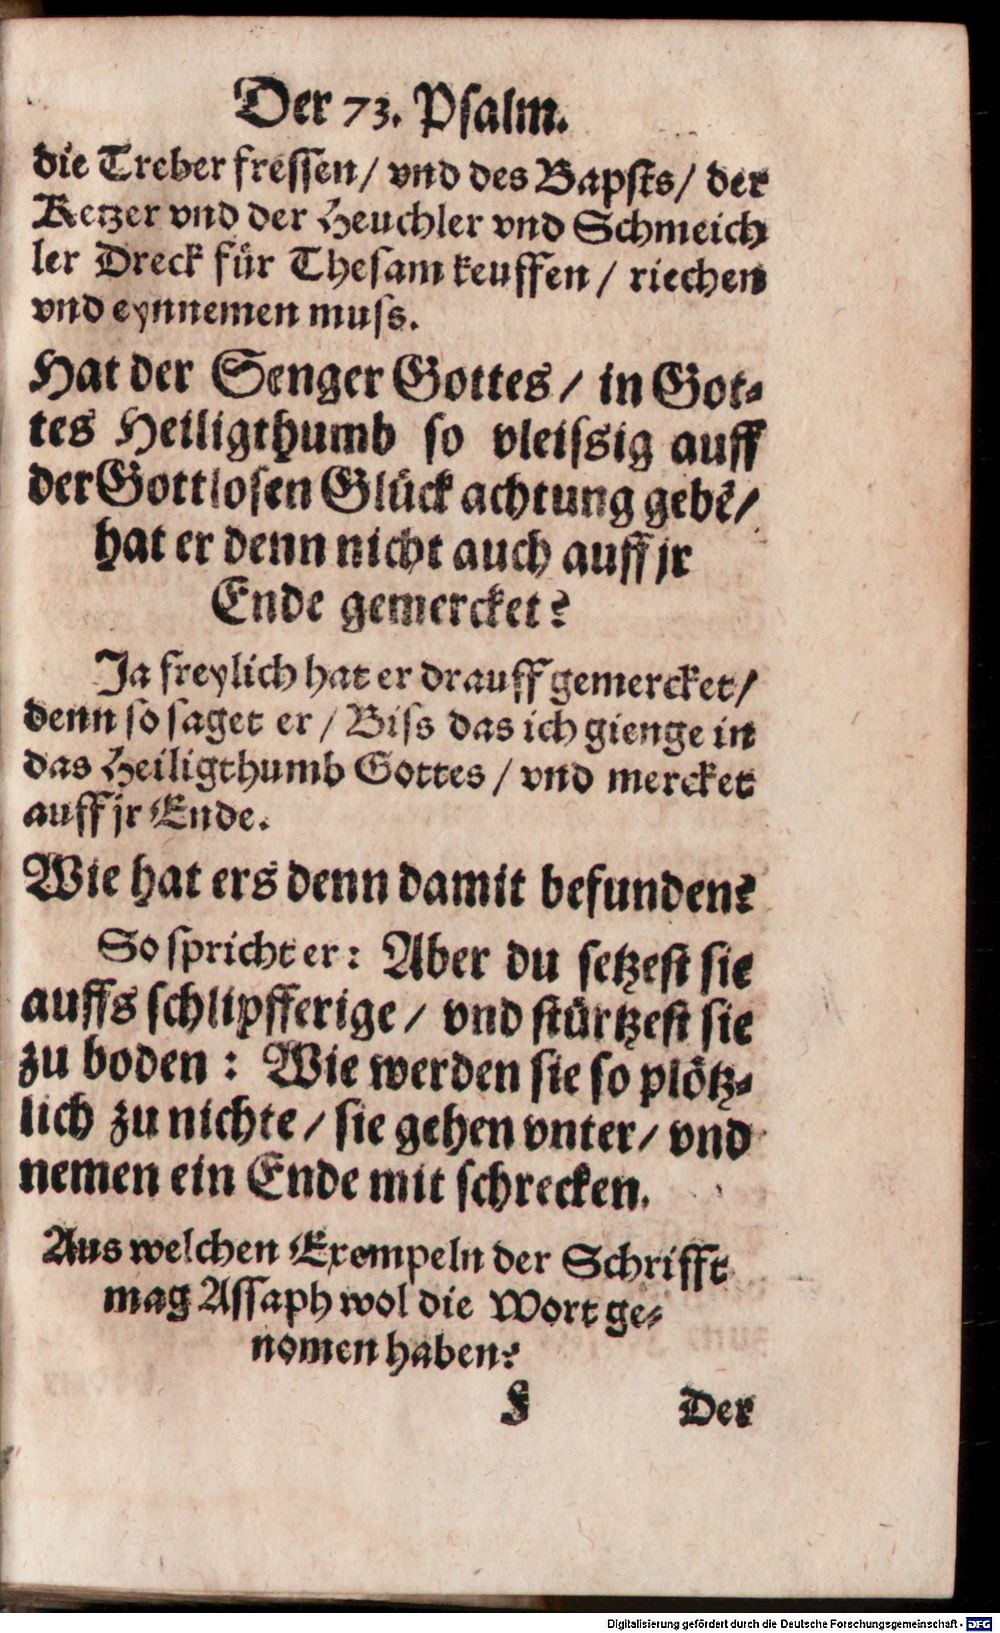 Der 73. Psalm.
die Treber fressen/ vnd des Bapsts/ der
Ketzer vnd der Heuchler vnd Schmeich
ler Dreck für Thesam keuffen/ riechen
vnd eynnemen muss.
Hat der Senger Gottes/ in Got-
tes Heiligthumb so vleissig auff
der Gottlosen Glück achtung gebē/
hat er denn nicht auch auff jr
Ende gemercket?
Ja freylich hat er drauff gemercket/
denn so saget er/ Biss das ich gienge in
das Heiligthumb Gottes/ vnd mercket
auff jr Ende.
Wie hat ers denn damit befunden?
So spricht er: Aber du setzest sie
auffs schlipfferige/ vnd stürtzest sie
zu boden: Wie werden sie so plötz-
lich zu nichte/ sie gehen vnter/ vnd
nemen ein Ende mit schrecken.
Aus welchen Exempeln der Schrifft
mag Assaph wol die Wort ge-
nomen haben?
F Der
Digitalisierung gefördert durch die Deutsche Forschungsgemeinschaft - DFG